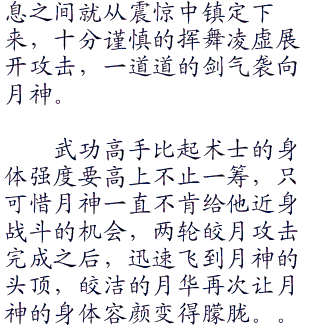 息之间就从震惊中镇定下
来，十分谨慎的挥舞凌虚展
开攻击，一道道的剑气袭向
月神。
武功高手比起术士的身
体强度要高上不止一筹，只
可惜月神一直不肯给他近身
战斗的机会，两轮皎月攻击
完成之后，迅速飞到月神的
头顶，皎洁的月华再次让月
神的身体容颜变得朦胧。。